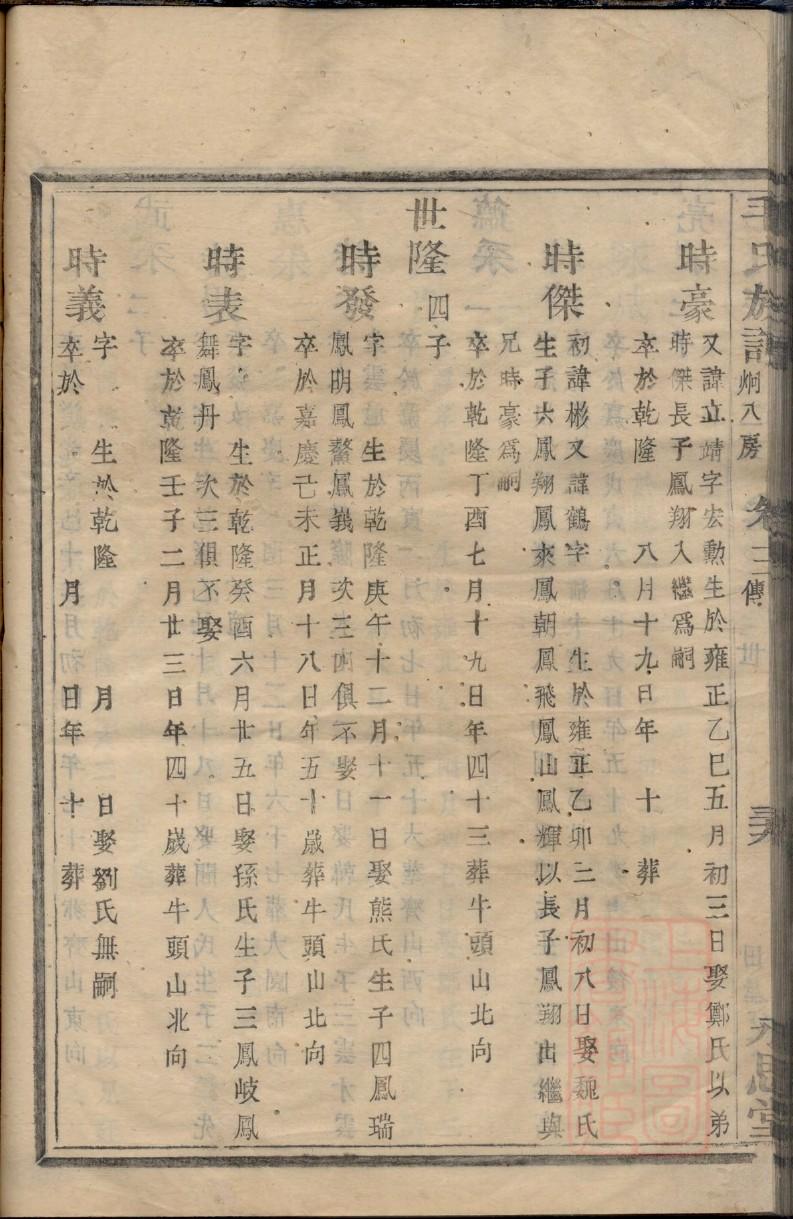 氏族譜 炯八房 卷 三傳
時豪
又諱立靖字宏勳生於雍正乙巳五月初三日娶鄭氏以弟
時傑長子鳳翔入繼爲嗣
卒於乾隆 八月十九日年 十 葬
時傑
初諱彬又諱鶴字 生於雍正乙卯二月初八日娶魏氏
生子六鳳翔鳳來鳳朝鳳飛鳳山鳳輝以長子鳳翔出繼與
兄時豪爲嗣
卒於乾隆丁酉七月十九日年四十三葬牛頭山北向
世隆 四子
時發
字 生於乾隆庚午十二月十一日娶熊氏生子四鳳瑞
鳳明鳳鰲鳳義次三四俱不娶
卒於嘉慶己未正月十八日年五十歲葬牛頭山北向
時表
字 生於乾隆癸酉六月廿五日娶孫氏生子三鳳岐鳳
舞鳳丹次三俱不娶
卒於乾隆壬子二月廿三日年四十歲葬牛頭山北向
時義
字 生於乾隆 月 日娶劉氏無嗣
卒於 月 日年 十 葬